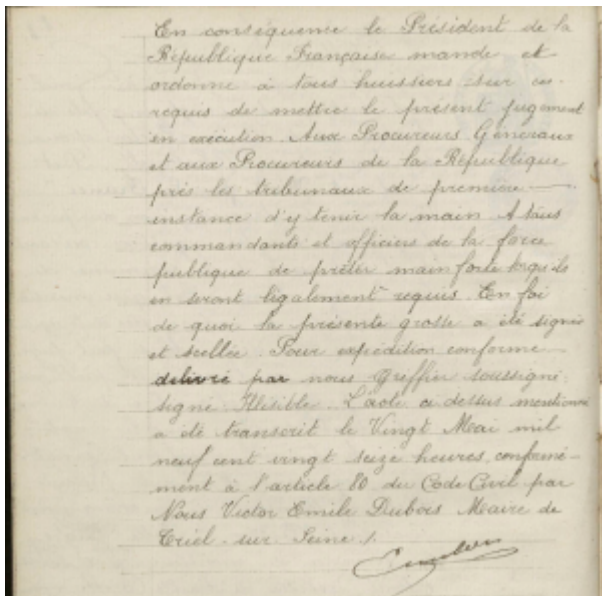 En conséquence le Président de la
République Française mande et
ordonne à tous huissiers sur ce
requis de mettre le présent jugement
en exécution. Aux Procureurs Généraux
et aux Procureurs de la République
près les tribunaux de première
instance d'y tenir la main A tous
commandants et officiers de la force
publique de prêter main forte lorsqu'ils
en seront légalement requis. En foi
de quoi la présente grosse a été signée
et scellée. Pour expédition conforme
délivré par nous Greffier soussigné.
signé Illisible. L'acte ci dessus mentionné
a été transcrit le Vingt Mai mil
neuf cent vingt seize heures, conformé-
ment à l'article 80 du Code Civil par
Nous Victor Emile Dubois Maire de
Triel-sur Seine /.